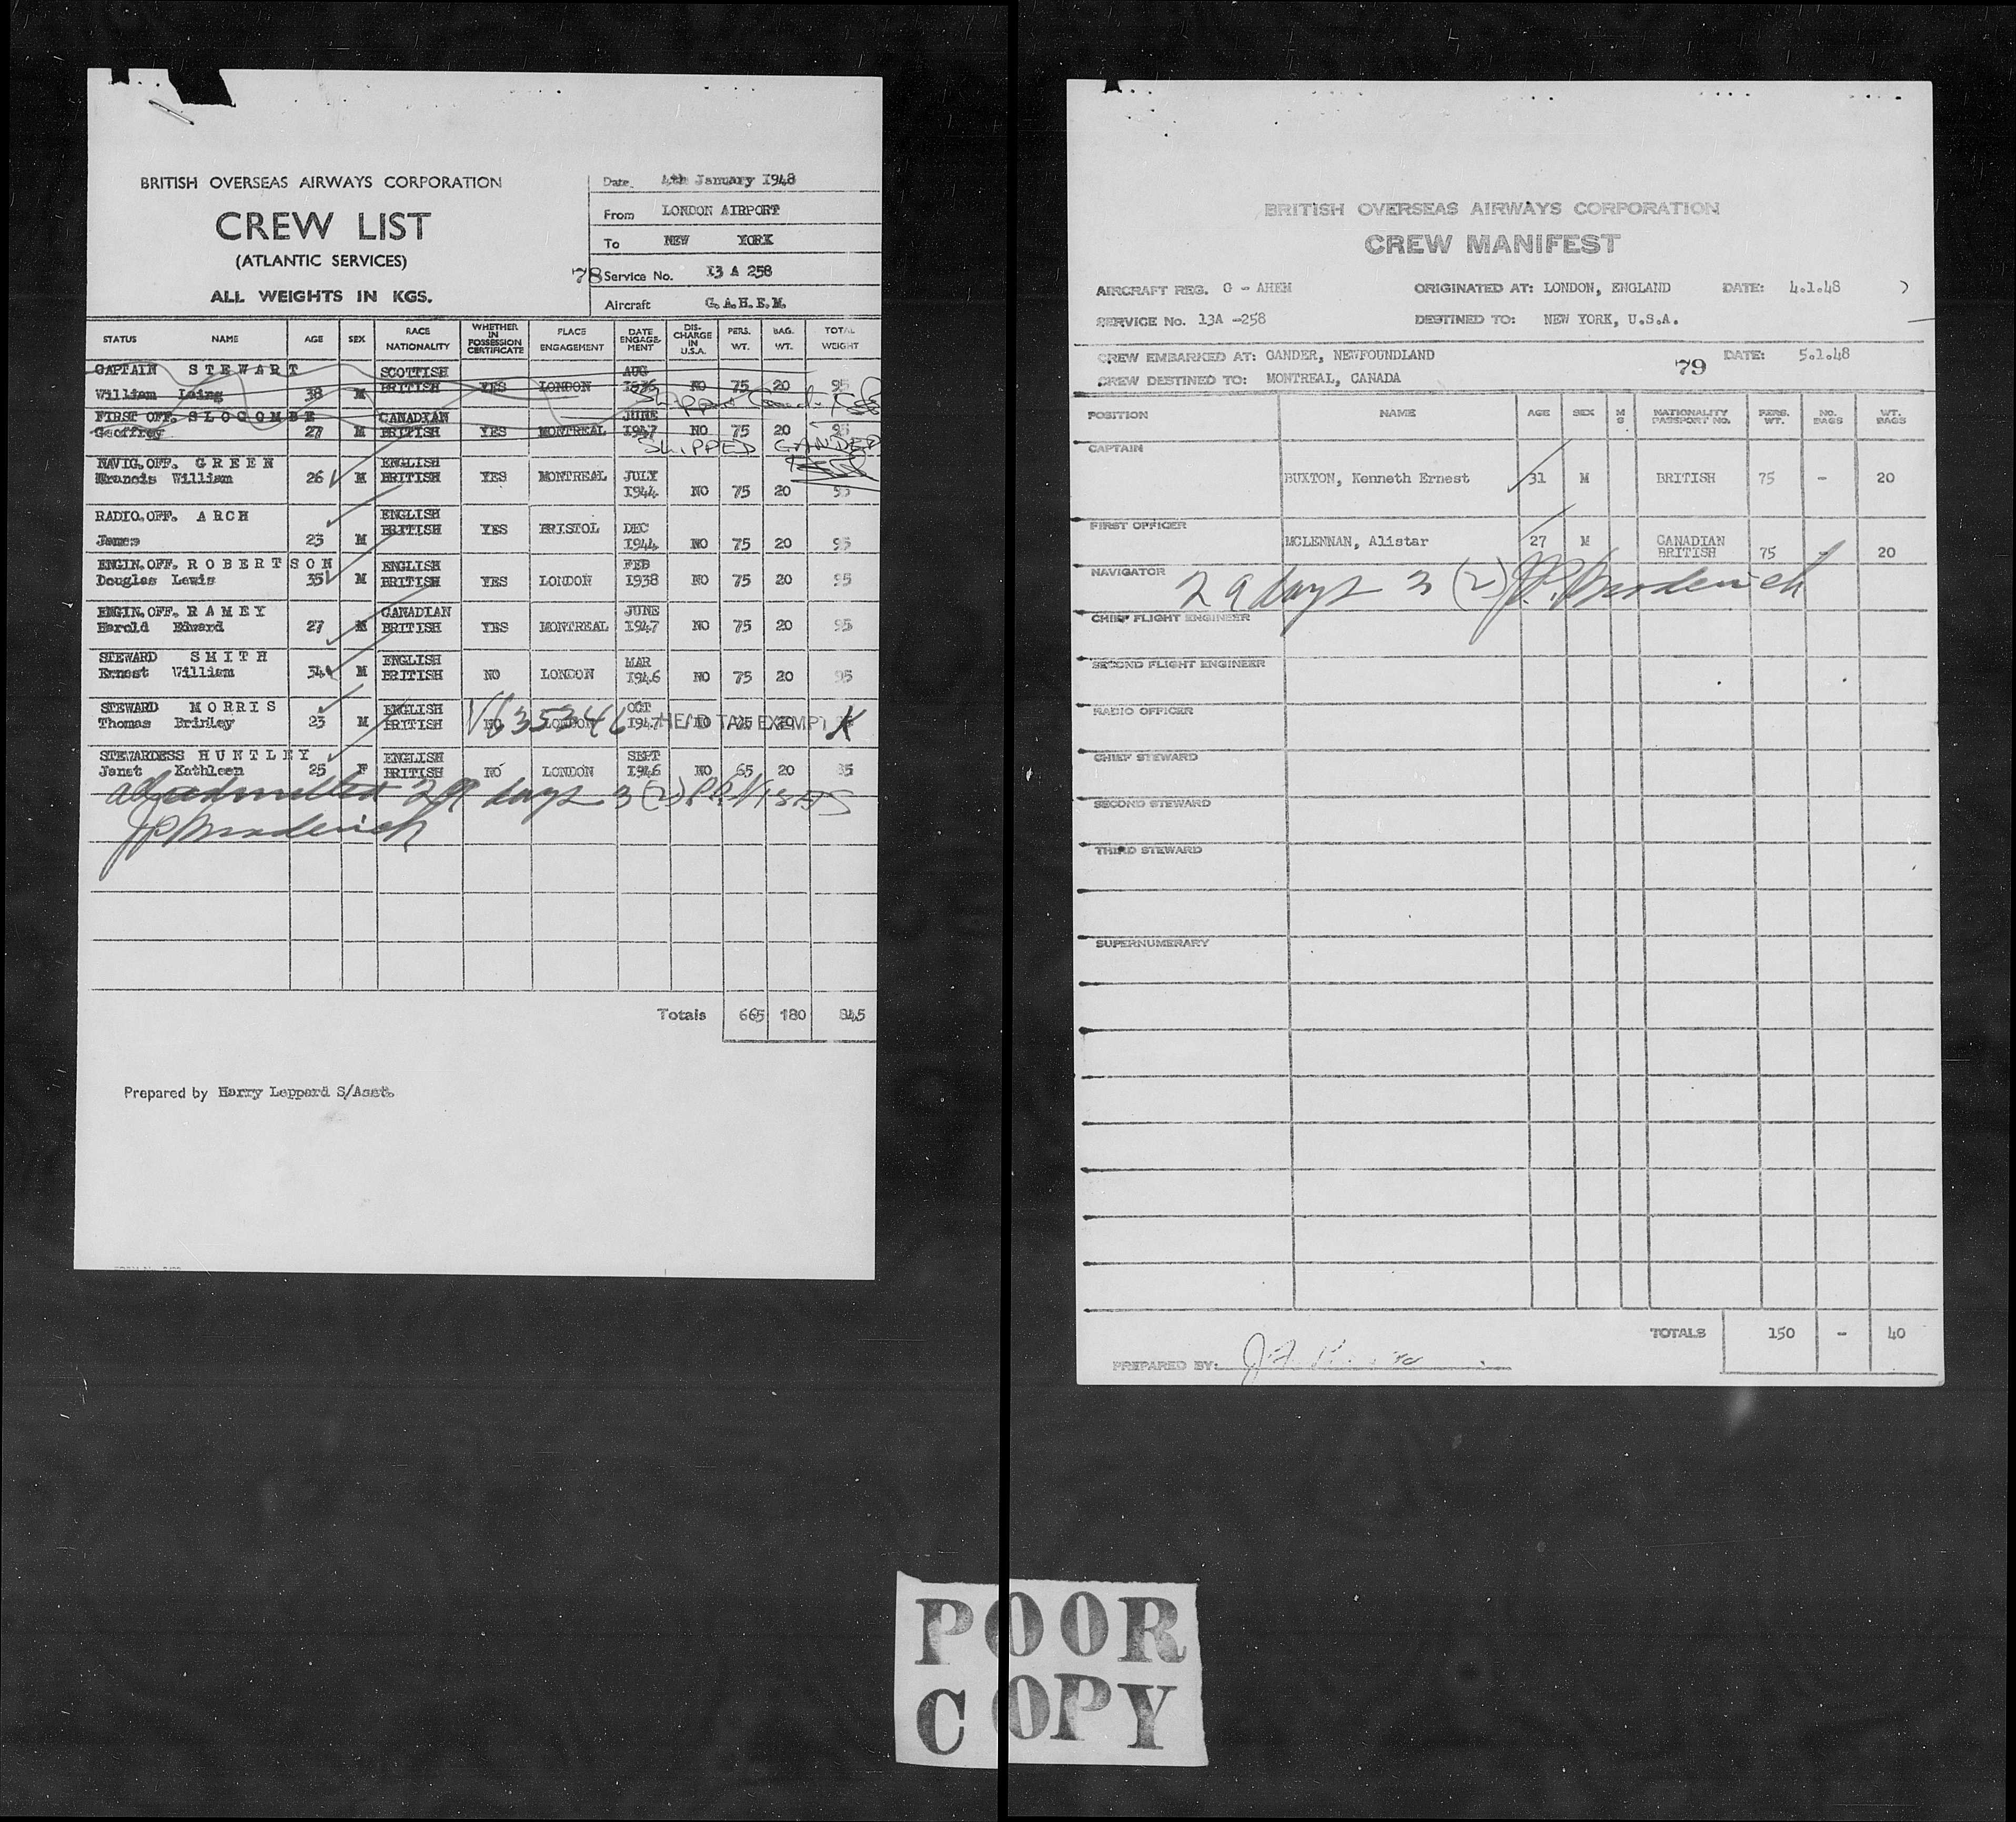 BRITISH OVERSEAS AIRWAYS CORPORATION
CREW LIST
(ATLANTIC SERVICES)
ALL WEIGHTS IN KGS.
Date 4th January 1948
From LONDON AIRPORT
To NEW YORK
78 Service No. 13 A 258
Aircraft G.A.H.E.M.
STATUS NAME AGE SEX RACE NATIONALITY WHETHER IN POSSESSION CERTIFICATE PLACE ENGAGEMENT DATE ENGAGE-MENT DIS-CHARGE IN U.S.A. PERS. WT. BAG. WT. TOTAL WEIGHT
CAPTAIN STEWART SCOTTISH AUG
William Laing 38 M BRITISH YES LONDON NO 75 20 95
FIRST OFF. SLOCOMBE CANADIAN JUNE
Geoffrey 27 M BRITISH YES MONTREAL 1947 NO 75 20 95
SLIPPED GANDER
NAVIG.OFF. GREEN ENGLISH
Francis William 26 M BRITISH YES MONTREAL JULY
1944 NO 75 20 95
RADIO.OFF. ARCH ENGLISH
BRITISH YES BRISTOL DEC
James 23 M 1944 NO 75 20 95
ENGIN.OFF. ROBERTSON ENGLISH FEB
Douglas Lewis 35 M BRITISH YES LONDON 1938 NO 75 20 95
ENGIN.OFF. RAMEY CANADIAN JUNE
Harold Edward 27 M BRITISH YES MONTREAL 1947 NO 75 20 95
STEWARD SMITH ENGLISH MAR
Ernest William 34 M BRITISH NO LONDON 1946 NO 75 20 95
STEWARD MORRIS ENGLISH OCT
Thomas Brinley 23 M BRITISH NO LONDON 1947 NO 75 20
V635346 HEAD TAX EXEMPT
STEWARDESS HUNTLEY ENGLISH SEPT
Janet Kathleen 25 F BRITISH NO LONDON 1946 NO 65 20 85
admitted 29 days 3(2)
J P Broderick
Totals 665 180 845
Prepared by Harry Leppard S/Asst.
BRITISH OVERSEAS AIRWAYS CORPORATION
CREW MANIFEST
AIRCRAFT REG. G - AHEM ORIGINATED AT: LONDON, ENGLAND DATE: 4.1.48
SERVICE No. 13A -258 DESTINED TO: NEW YORK, U.S.A.
CREW EMBARKED AT: GANDER, NEWFOUNDLAND 79 DATE: 5.1.48
CREW DESTINED TO: MONTREAL, CANADA
POSITION NAME AGE SEX M S NATIONALITY PASSPORT NO. PERS. WT. NO. BAGS WT. BAGS
CAPTAIN
BUXTON, Kenneth Ernest 31 M BRITISH 75 - 20
FIRST OFFICER
MCLENNAN, Alistar 27 M CANADIAN BRITISH 75 - 20
NAVIGATOR
29 days 3 (2) J.P. Broderick
CHIEF FLIGHT ENGINEER
SECOND FLIGHT ENGINEER
RADIO OFFICER
CHIEF STEWARD
SECOND STEWARD
THIRD STEWARD
SUPERNUMERARY
TOTALS 150 - 40
PREPARED BY:
POOR
COPY